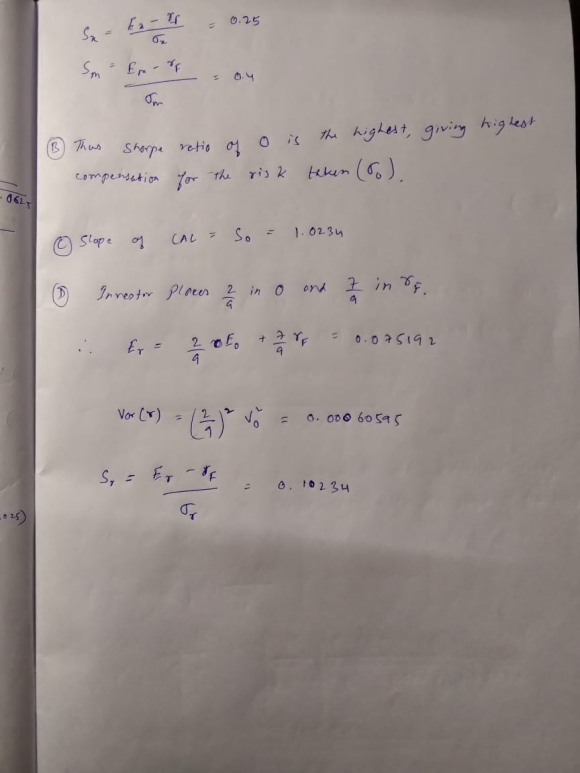 Sx = (Ex - rf) / σx = 0.25
Sm = (Em - rF) / σm = 0.4
(B) Thus sharpe ratio of O is the highest, giving highest
compensation for the risk taken (σo).
(C) Slope of CAL = So = 1.0234
(D) Investor places 2/9 in O and 7/9 in rF.
∴ Er = 2/9 Eo + 7/9 rF = 0.075192
Var(r) = (2/9)² σo² = 0.00060595
Sr = (Er - rF) / σr = 0.10234
.025)